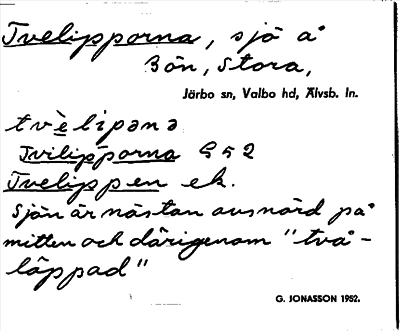 Tvelipporna, sjö å
Bön, Stora,
Järbo sn, Valbo hd, Älvsb. ln.
tvèlipəna
Tvilipporna G52
Tvelippen ek.
Sjön är nästan avsnörd på
mitten och därigenom "två-
läppad"
G. JONASSON 1952.